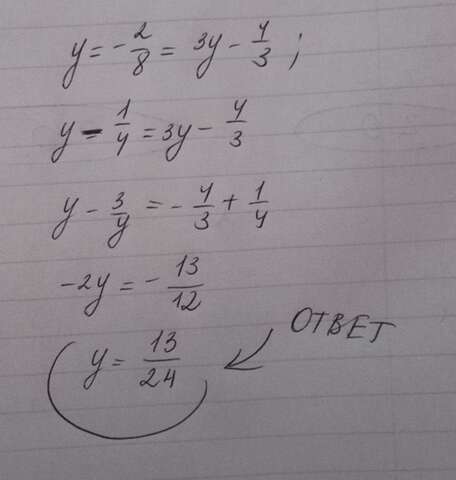 y = - 2/8 = 3y - 4/3 ;
y - 1/4 = 3y - 4/3
y - 3/y = - 4/3 + 1/4
-2y = - 13/12
y = 13/24
ОТВЕТ